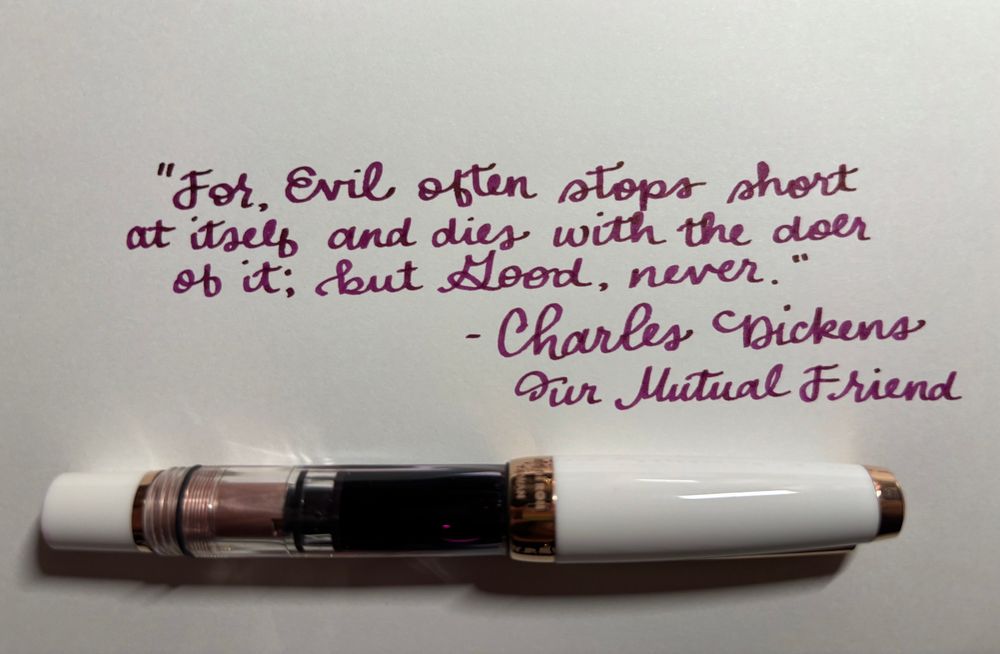 "For, Evil often stops short
at itself and dies with the doer
of it; but Good, never."
- Charles Dickens
Our Mutual Friend